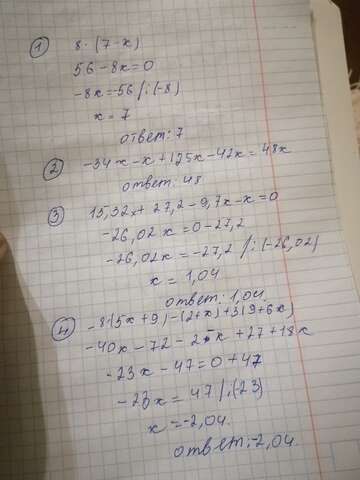 ① 8·(7-x)
56-8x=0
-8x=-56 /:(-8)
x=7
ответ: 7
② -34x-x+125x-42x=48x
ответ: 48
③ 15,32x+27,2-9,7x-x=0
-26,02x=0-27,2
-26,02x=-27,2 /:(-26,02)
x=1,04
ответ: 1,04.
④ -8(5x+9)-(2+x)+3(9+6x)
-40x-72-2-x+27+18x
-23x-47=0+47
-23x=47 /:(23)
x=-2,04.
ответ:-2,04.